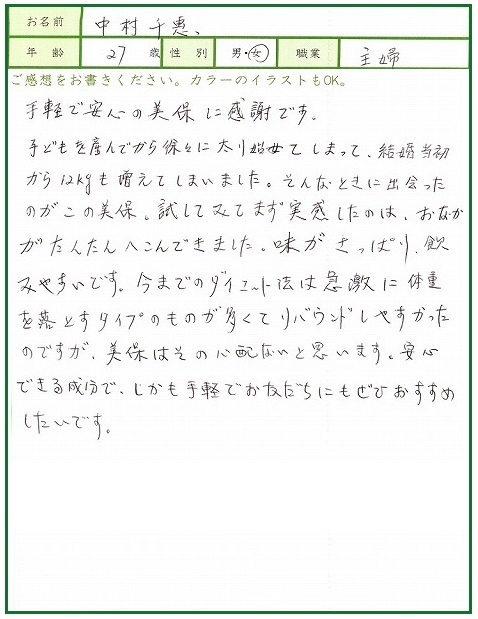 お名前 中村千恵
年齢 27 歳 性別 男・女 職業 主婦
ご感想をお書きください。カラーのイラストもOK。
手軽で安心の美保に感謝です。
子どもを産んでから徐々に太り始めてしまって、結婚当初
から12kgも増えてしまいました。そんなときに出会った
のがこの美保。試してみてまず実感したのは、おなか
がだんだんへこんできました。味がさっぱり、飲
みやすいです。今までのダイエット法は急激に体重
を落とすタイプのものが多くてリバウンドしやすかった
のですが、美保はその心配ないと思います。安心
できる成分で、しかも手軽でお友だちにもぜひおすすめ
したいです。